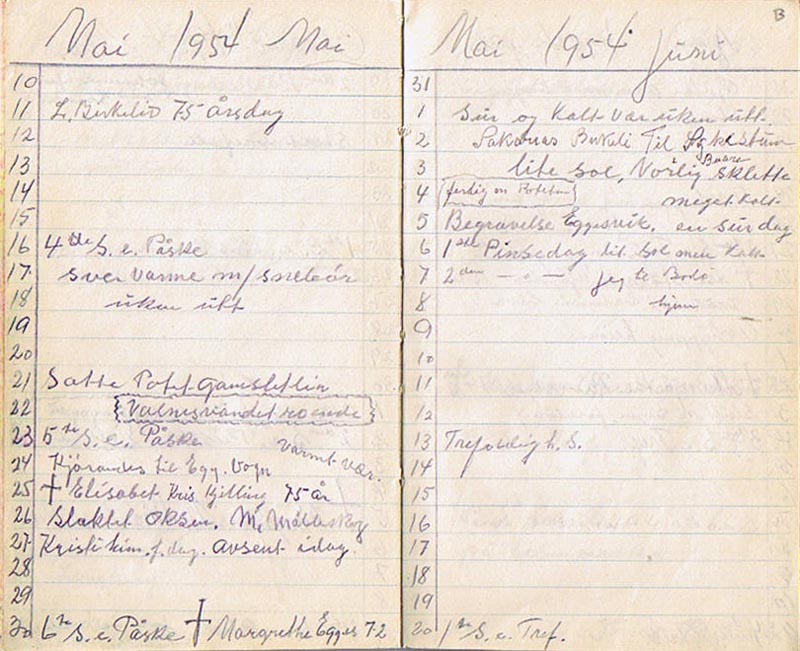 Mai 1954 Mai
10
11 L. Birkelid 75 årsdag
12
13
14
15
16 4de S. e. Påske
17 svær varme m/ snebår
18 uken utt
19
20
21 Satte Potet Gamsletlin
22 Valnesvandet roende
23 5te S. e. Påske varmt vær.
24 Kjörandes til Egg. Vogn
25 † Elisabet Kris Kjilling 75 år
26 Slaktet Oksen,
27 Kristi him. f. dag. Avsent idag
28
29
30 6te S. e. Påske † Margrethe Egges 72
B
Mai 1954 Juni
31
1 sur og Kalt var uken utt.
2 Sakarias Birkeli Til Sykestuen
Baare
3 lite sol, Vårlig sklette
4 ferdig m Poteten meget Kalt
5 Begravelse Eggesvik, en sur dag
6 1ste Pinsedag lit sol men Kalt
7 2den — " — jeg te Bodö
8 hjem
9
10
11
12
13 Trefoldigh. S.
14
15
16
17
18
19
20 1ste S. e. Tref.